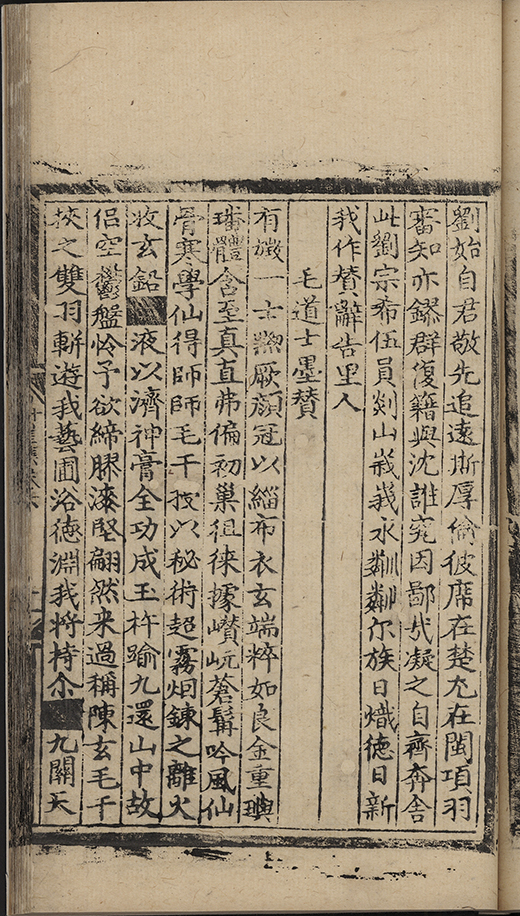 劉始自君敬先追遠斯厚倫彼席在楚尤在閩項羽
審知亦鏐群復籍與沈誰究因鄙哉凝之自齊奔舍
此劉宗希伍員剡山峩峩水粼粼尔族日熾徳日新
我作賛辭告里人
毛道士墨賛
有媺一士黝厥顔冠以緇布衣玄端粹如良金重璵
璠體含至真直弗偏初巢徂徠據巑岏蒼髯吟風仙
骨寒學仙得師師毛干授以秘術超霧烟鍊之離火
收玄鉛液以濟神膏全功成玉杵踰九還山中故
侣空鬱盤怜予欲締膠漆堅翩然来過稱陳玄毛干
挾之雙羽軿遊我藝圃浴徳淵我将持尒九關天